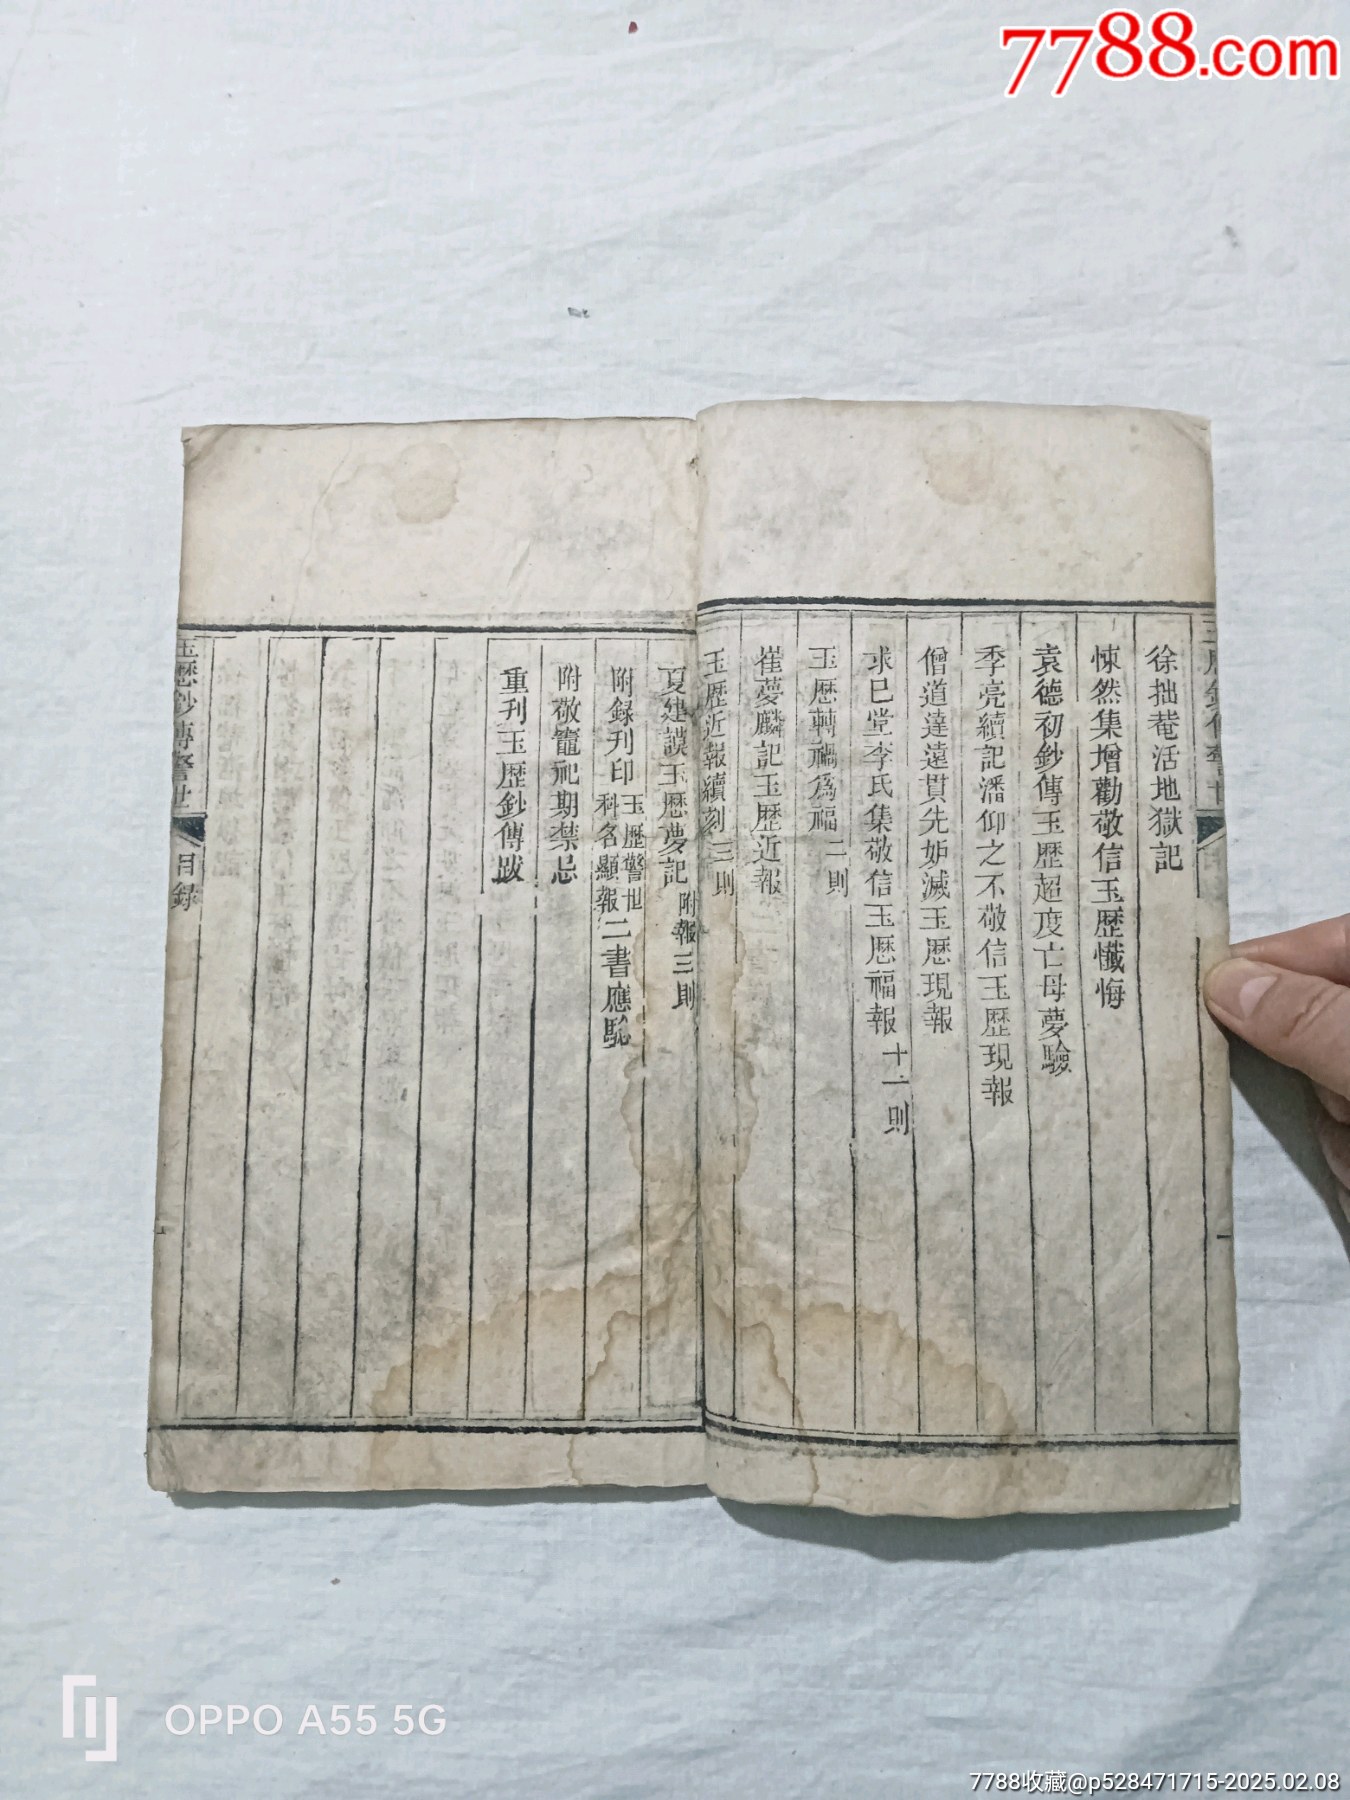 7788.com
徐拙菴活地獄記
悚然集增勸敬信玉歷懺悔
袁德初鈔傳玉歷超度亡母夢驗
季亮續記潘仰之不敬信玉歷現報
僧道達遠貫先妒滅玉歷現報
求已堂李氏集敬信玉歷福報 十一則
玉歷轉禍爲福 二則
崔夢麟記玉歷近報
玉歷近報續刻 三則
夏建謨玉歷夢記 附報三則
附錄刊印 玉歷警世 科名顯報 二書應驗
附敬竈祀期禁忌
重刊玉歷鈔傳跋
玉歷鈔傳警世 目錄
OPPO A55 5G
7788收藏@p528471715-2025.02.08